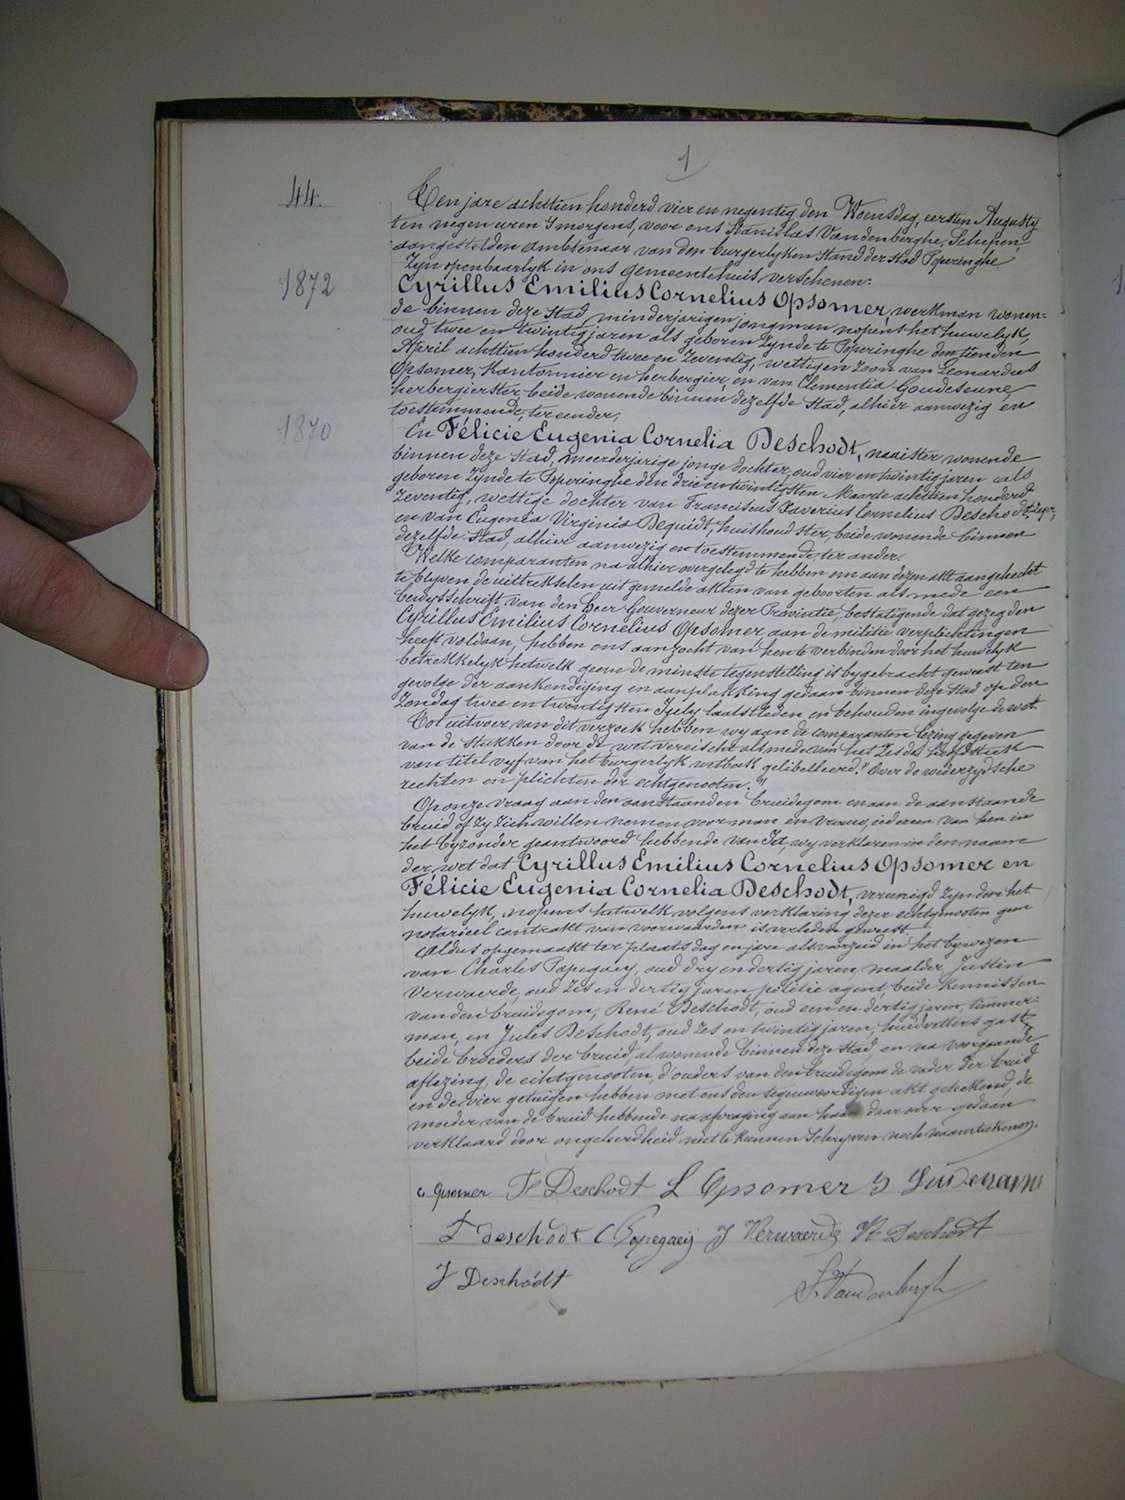 1
44.
Ten jare achttien honderd vier en negentig den Woensdag, eersten Augusty
ten negen uren 's morgens, voor ons Stanislas Vandenberghe, Schepen,
aangestelden ambtenaar van den burgerlyken Stand der stad Poperinghe
Zyn openbaarlyk in ons gemeentehuis verschenen:
1872
Cyrillus Emilius Cornelius Opsomer, werkman wonen-
de binnen deze Stad, minderjarigen jongman nopens het huwelyk,
oud twee en twintig jaren als geboren zynde te Poperinghe den tienden
April achttien honderd twee en zeventig, wettigen zoon van Leonardus
Opsomer, Kantonnier en herbergier, en van Clementia Goudeseune
herbergierster, beide wonende binnen dezelfde Stad, alhier aanwezig en
toestemmende, ter eender,
1870
En Félicie Eugenia Cornelia Deschodt, naaister wonende
binnen deze Stad, meerderjarige jonge dochter, oud vier en twintig jaren als
geboren zynde te Poperinghe den drie en twintigsten Maarte achttien honderd
zeventig, wettige dochter van Franciscus Xaverius Cornelius Deschodt,
en van Eugenia Virginia Dequidt, huishoudster, beide wonende binnen
dezelfde Stad, alhier aanwezig en toestemmende, ter ander.
Welke comparanten na alhier overgelegd te hebben om aan dezen akt aangehecht
te blyven de uittrekselen uit gemelde akten van geboorten als mede een
bewysschrift van den Heer Gouverneur dezer Provintie, bestatigende dat gezegden
Cyrillus Emilius Cornelius Opsomer aan de militie verplichtingen
heeft voldaan, hebben ons aanzocht van hen te verbinden door het huwelyk
betrekkelyk hetwelk geene de minste tegenstelling is bygebracht geweest ten
gevolge der aankondiging en aanplakking gedaan binnen deze Stad op den
Zondag twee en twintigsten July laatstleden, en behouden ingevolge de wet.
Tot uitvoer van dit verzoek hebben wy aan de comparanten lezing gegeven
van de stukken door de wet vereischt als mede van het zesde hoofdstuk
van titel vyf van het burgerlyk wetboek gelibelleerd: "Over de wederzydsche
rechten en plichten der echtgenooten."
Op onze vraag aan den aanstaanden bruidegom en aan de aanstaande
bruid of zy zich willen nemen voor man en vrouw, iedereen van hen in
het byzonder geantwoord hebbende van Ja, wy verklaren in den naam
der wet dat Cyrillus Emilius Cornelius Opsomer en
Félicie Eugenia Cornelia Deschodt, vereenigd zyn door het
huwelyk, nopens hetwelk volgens verklaring dezer echtgenooten geen
notarieel contrakt van voorwaarden is verleden geweest.
Aldus opgemaakt ter plaats dag en jare als vorzeid in het bywezen
van Charles Papegaey, oud dry en dertig jaren, maalder, Justin
Verwaerde, oud zes en dertig jaren, politie agent, beide kennissen
van den bruidegom, René Deschodt, oud een en dertig jaren, timmer-
man, en Jules Deschodt, oud zes en twintig jaren, huidvetters gast,
beide broeders der bruid, al wonende binnen deze Stad, en na voorgaande
aflezing, de echtgenooten, d'ouders van den bruidegom de vader der bruid
en de vier getuigen hebben met ons den tegenwoordigen akt geteekend, de
moeder van de bruid hebbende na afvraging aan haar daarover gedaan
verklaard door ongeleerdheid niet te kunnen schryven noch naamteekenen.
C Opsomer F Deschodt L Opsomer
F deschodt C Papegaeij J Verwaerde R Deschodt
J Deschodt S. Vandenberghe